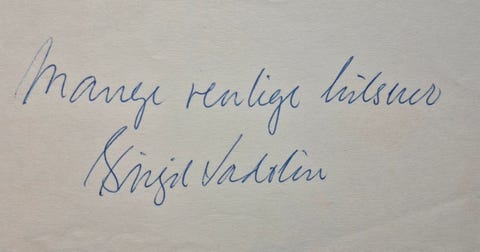 Mange venlige hilsner
Birgit Vadolin